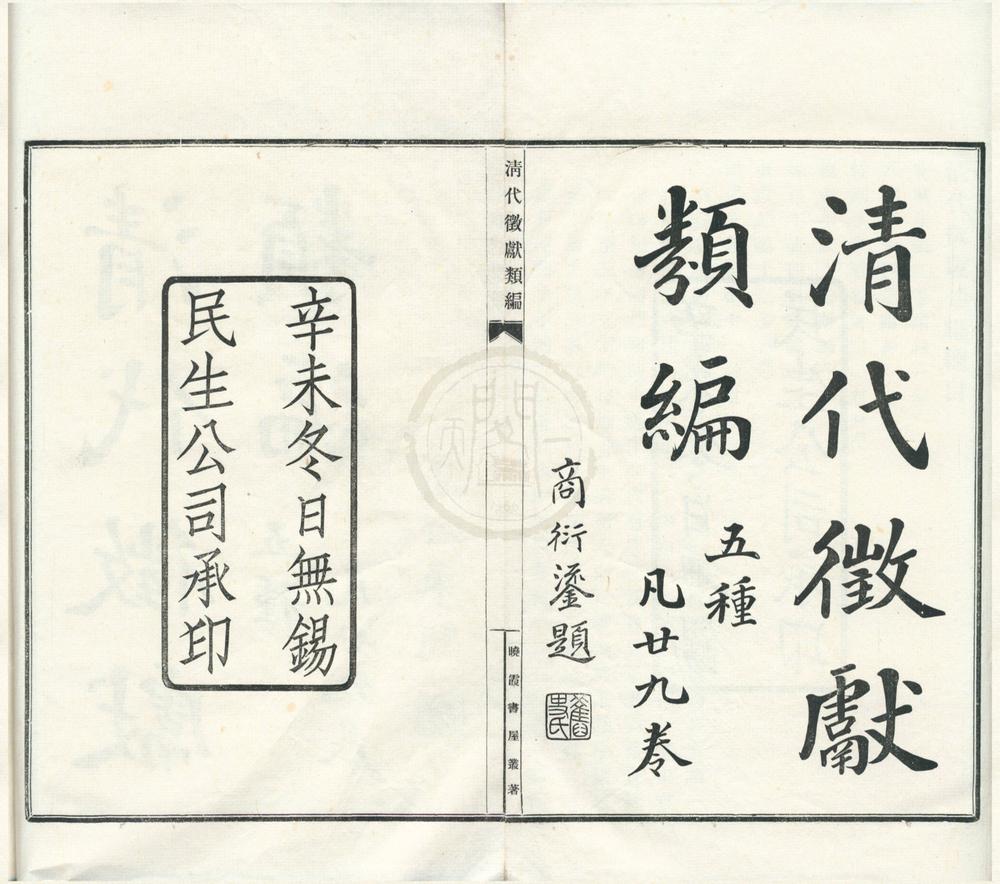 清代徵獻
類編
五種
凡廿九卷
商衍鎏題
清代徵獻類編
曉霞書屋叢著
辛未冬日無錫
民生公司承印